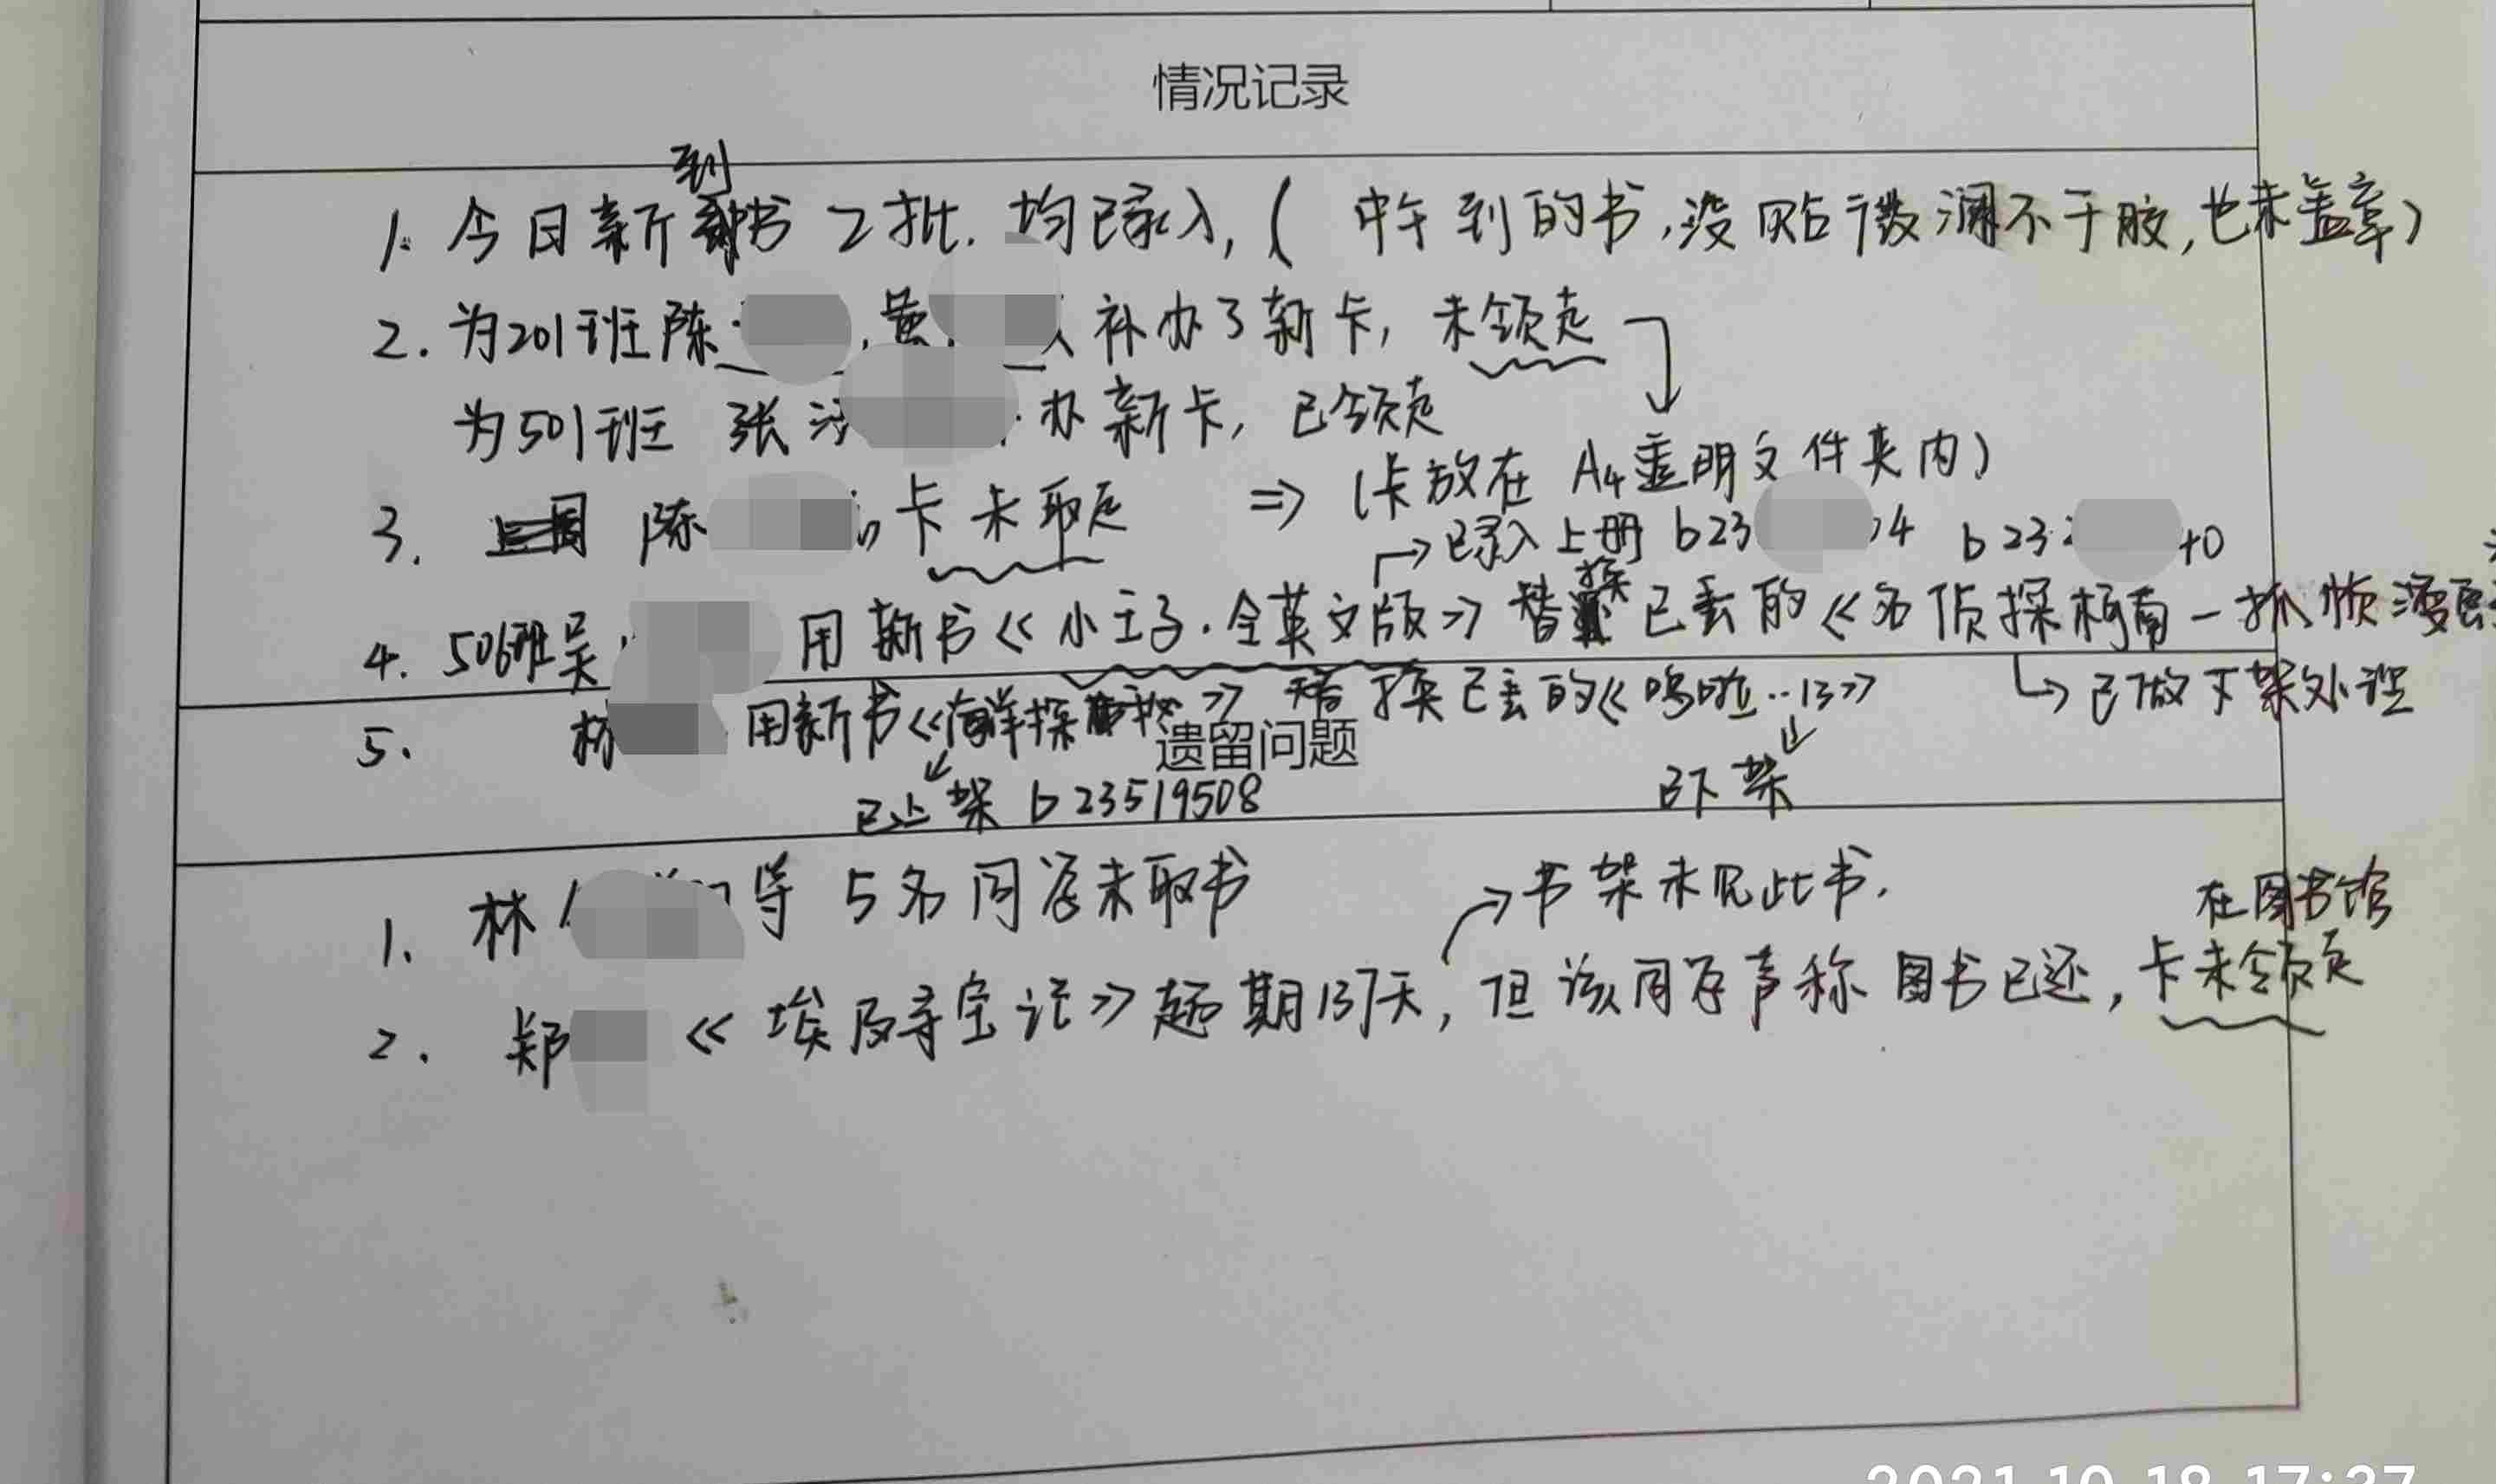 情况记录
到
1. 今日新书2批. 均已录入, ( 中午到的书,没贴微澜不干胶,也未盖章)
2. 为201班陈 , 黄 补办了新卡, 未领走
为501班 张 办新卡, 已领走
(卡放在 A4透明文件夹内)
3. 陈 卡未取走 ⇒
→已录入上册 b23 4 b23 +0
4. 506班吴 用新书《小王子·全英文版》替换已丢的《名侦探柯南一抓帧漫画
→已做下架处理
5. 林 用新书《海洋探 》替换已丢的《呜啦..13》
遗留问题
已上架 b23519508 已下架
1. 林 等 5名同学未取书
→书架未见此书.
在图书馆
2. 郑 《埃及寻宝记》超期137天, 但该同学声称图书已还, 卡未领走
2021.10.18 17:37